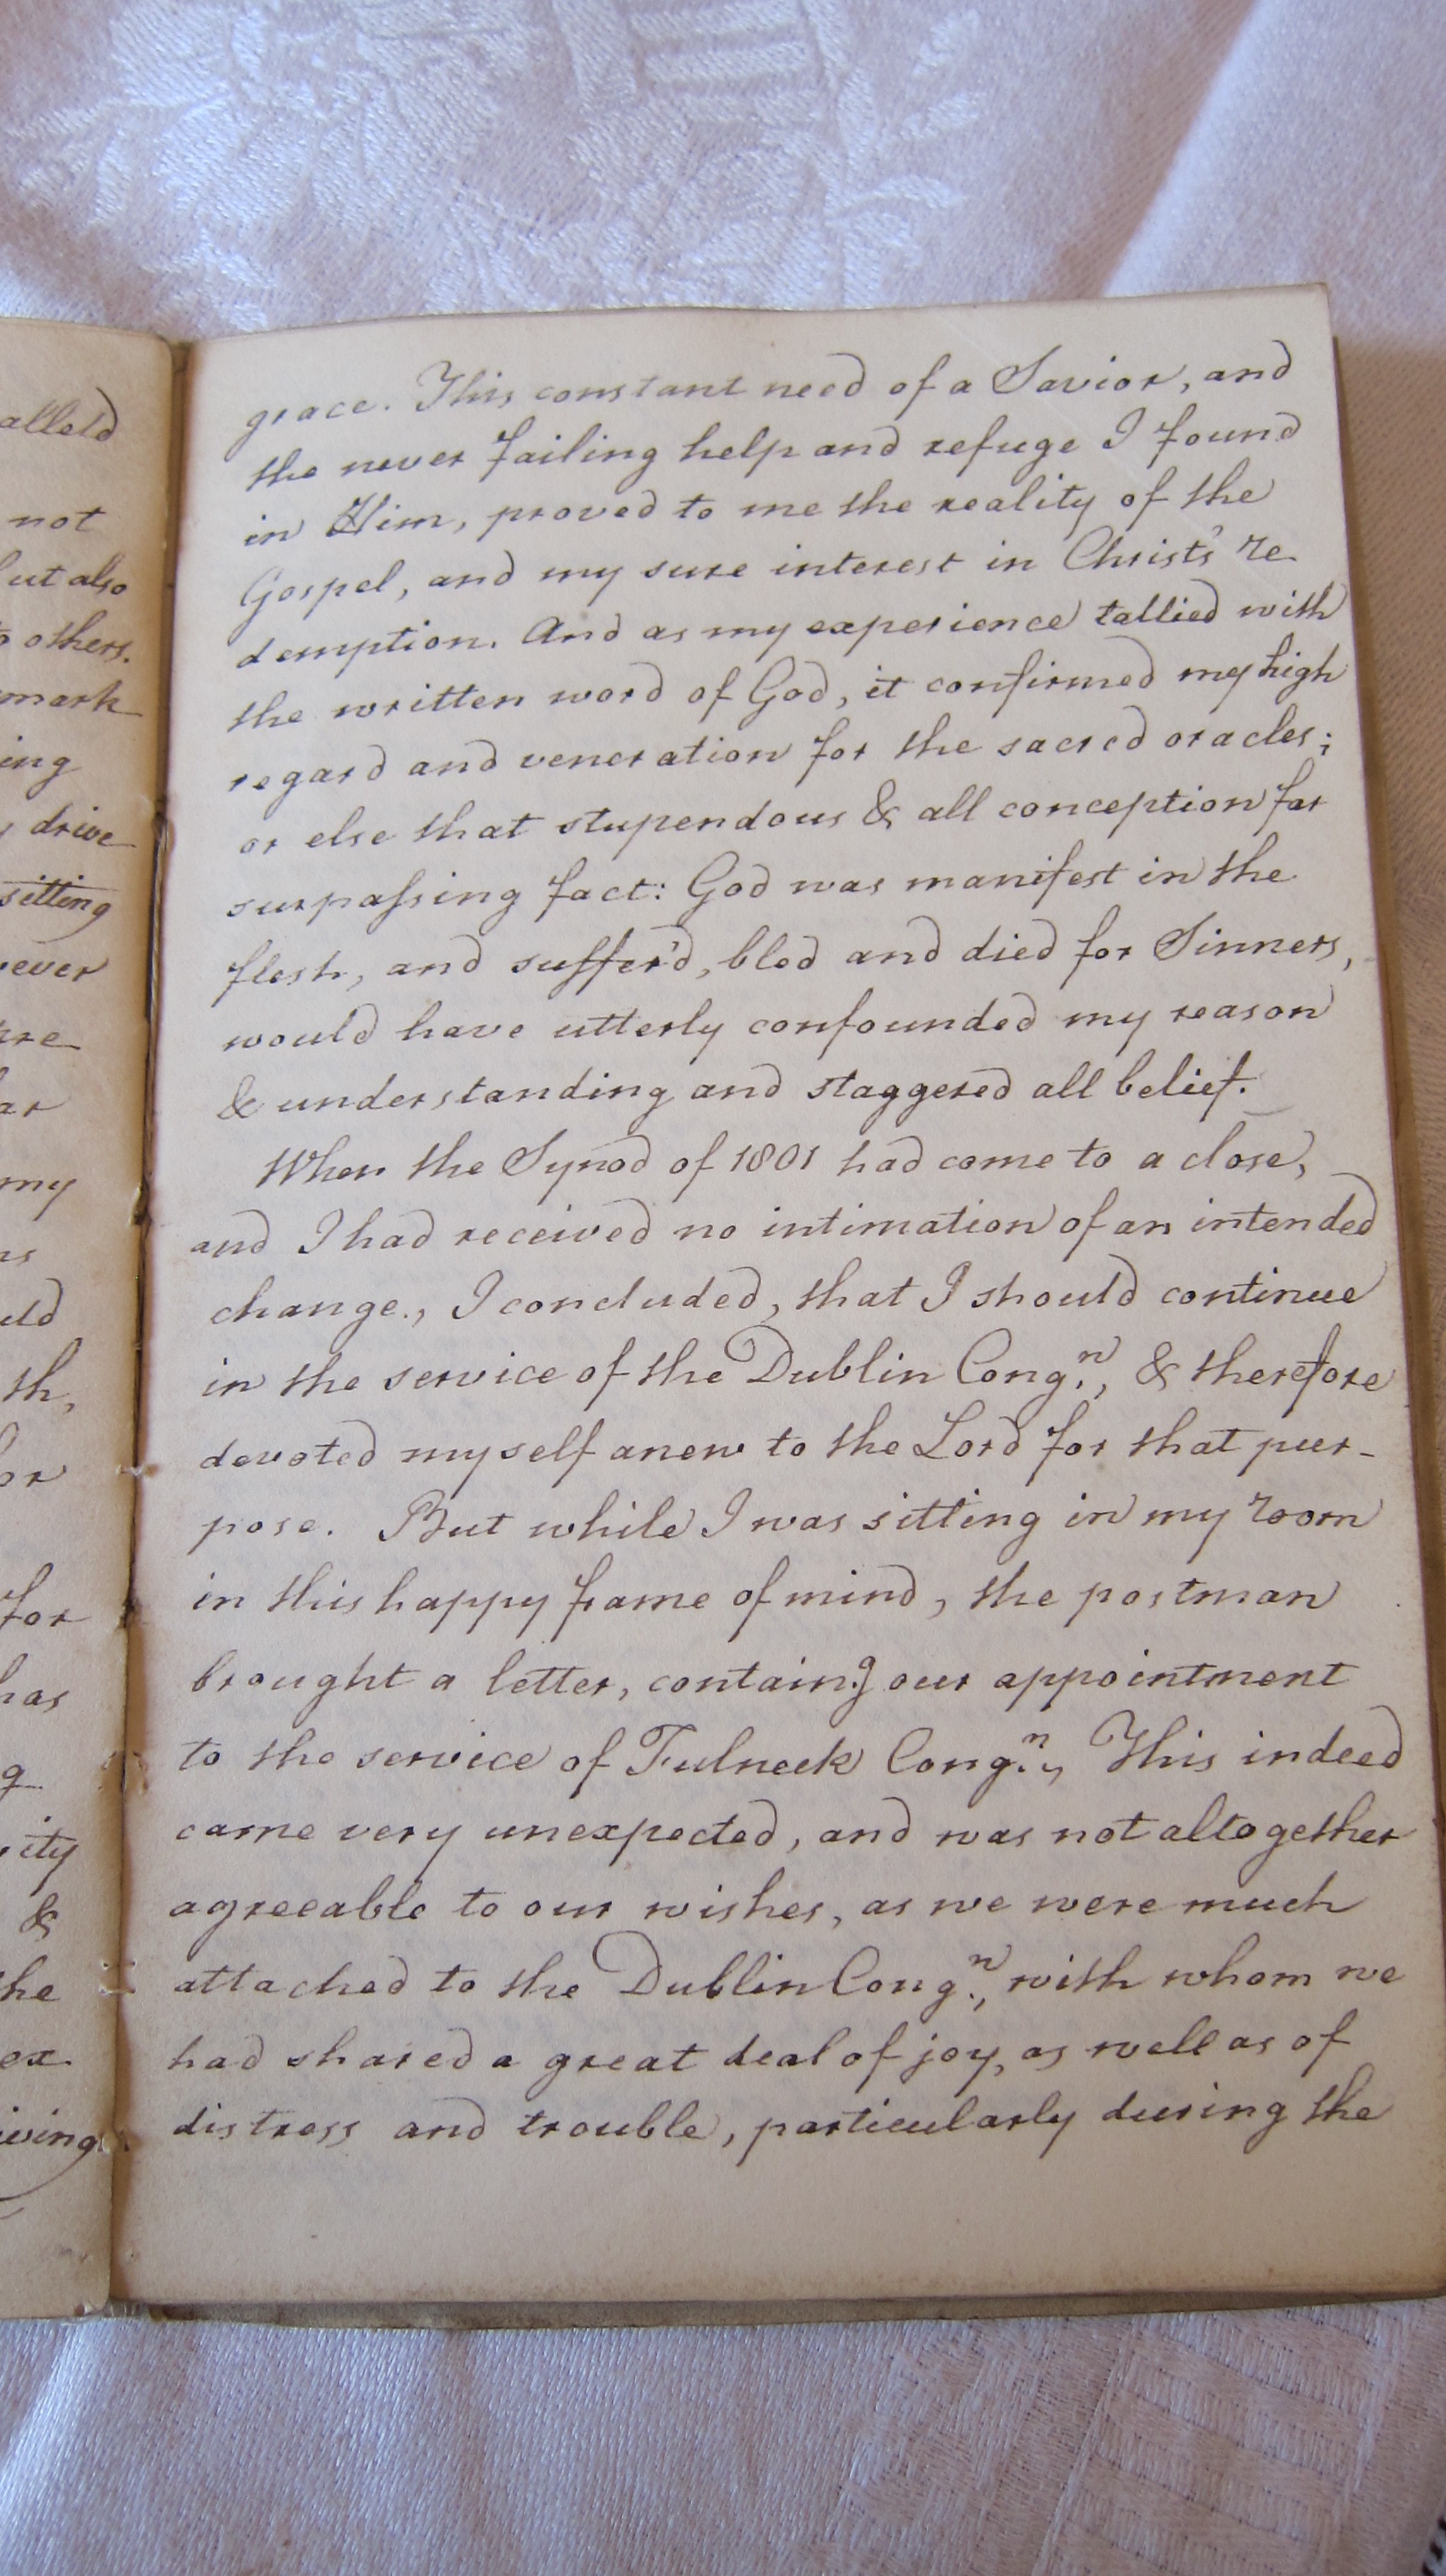 alleld
not
ut also
others.
mark
ing
drive
sitting
ever
are
ar
my
ns
uld
th,
or
for
has
g
ity
&
he
ex
iving
grace. This constant need of a Savior, and
the never failing help and refuge I found
in Him, proved to me the reality of the
Gospel, and my sure interest in Christ's re
demption. And as my experience tallied with
the written word of God, it confirmed my high
regard and veneration for the sacred oracles;
or else that stupendous & all conception far
surpaſsing fact: God was manifest in the
flesh, and suffer'd, bled and died for Sinners,
would have utterly confounded my reason
& understanding and staggered all belief.
When the Synod of 1801 had come to a close,
and I had received no intimation of an intended
change., I concluded, that I should continue
in the service of the Dublin Congⁿ., & therefore
devoted myself anew to the Lord for that pur-
pose. But while I was sitting in my room
in this happy frame of mind, the postman
brought a letter, contain.g our appointment
to the service of Fulneck Congⁿ., This indeed
came very unexpected, and was not altogether
agreeable to our wishes, as we were much
attached to the Dublin Congⁿ., with whom we
had shared a great deal of joy, as well as of
distress and trouble, particularly during the